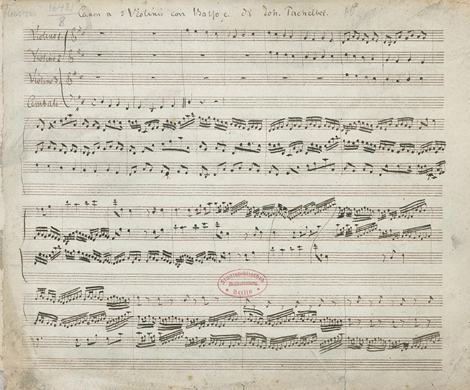 Canon a 3 Violinis con Basso c. di Joh. Pachelbel.
8
Violino 1
Violino 2
Violino 3
Cembalo
Berlin